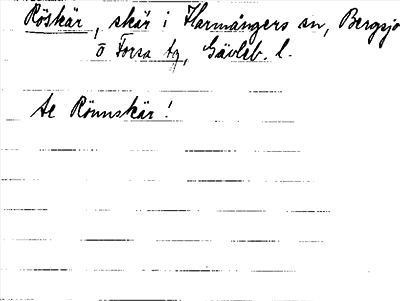 Röskär, skär i Harmångers sn, Bergsjö
o Forsa tg, Gävleb. l.
se Rönnskär!